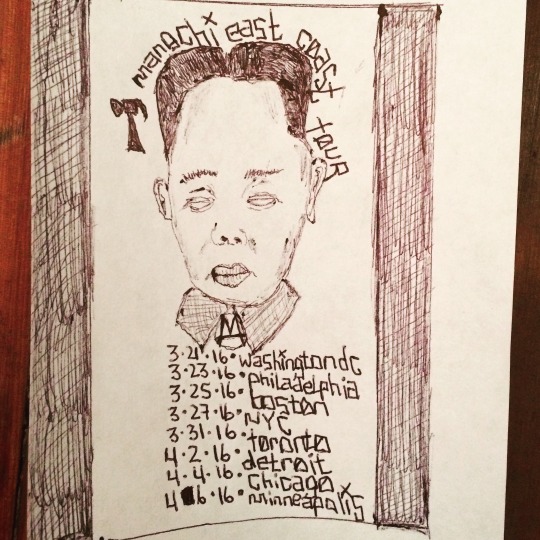 manachi east coast tour
M
3·21·16· washingtondc
3·23·16· philadelphia
3·25·16· boston
3·27·16· NYC
3·31·16· toronto
4·2·16· detroit
4·4·16· chicago
4·6·16· minneapolis